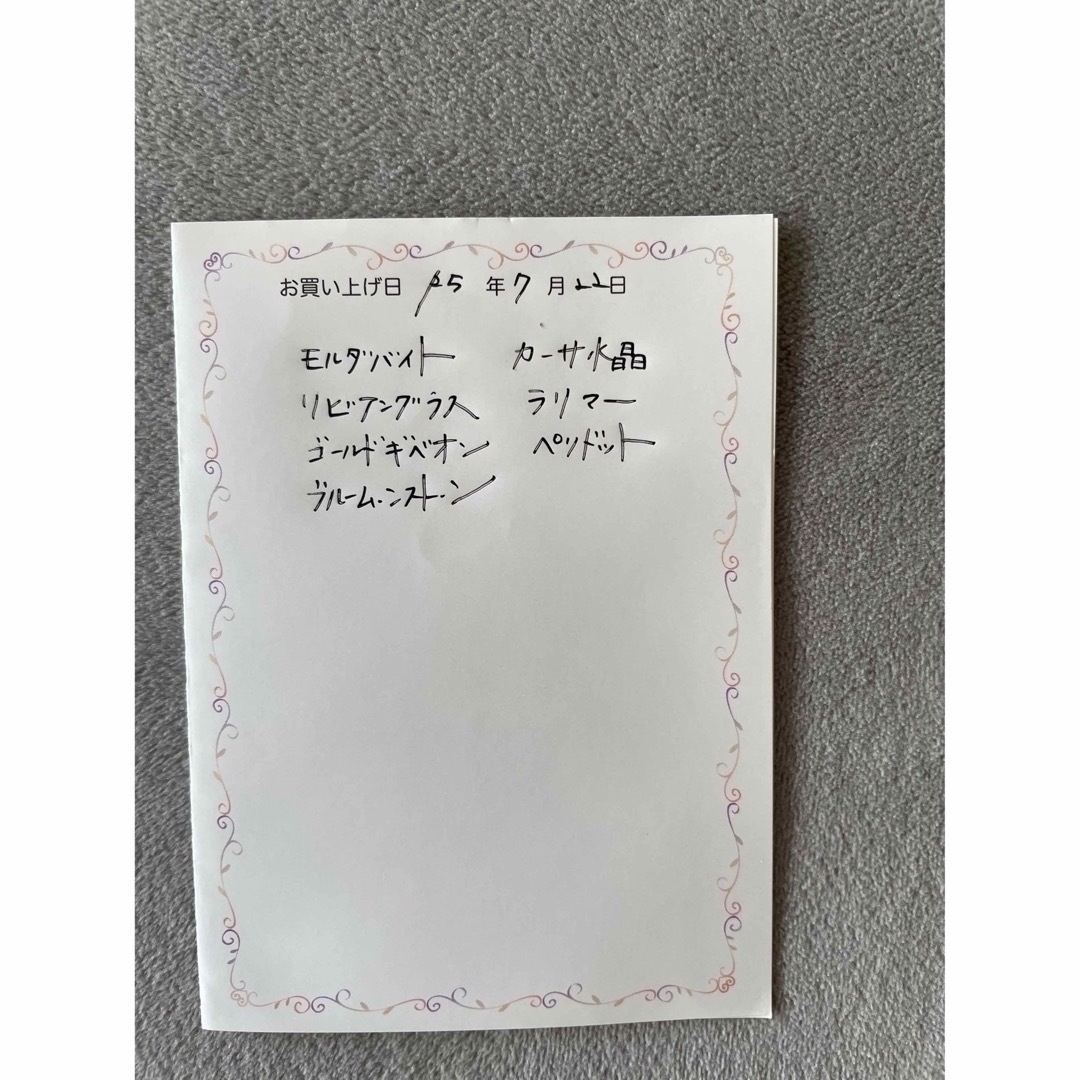 お買い上げ日 '25 年 7 月 22日
モルダバイト カーサ水晶
リビアングラス ラリマー
ゴールドギベオン ペリドット
ブルームーンストーン